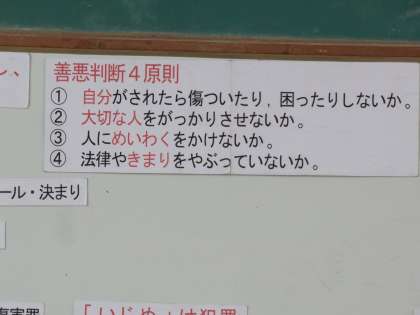 善悪判断４原則
① 自分がされたら傷ついたり，困ったりしないか。
② 大切な人をがっかりさせないか。
③ 人にめいわくをかけないか。
④ 法律やきまりをやぶっていないか。
ール・決まり
「いじめ」は犯罪